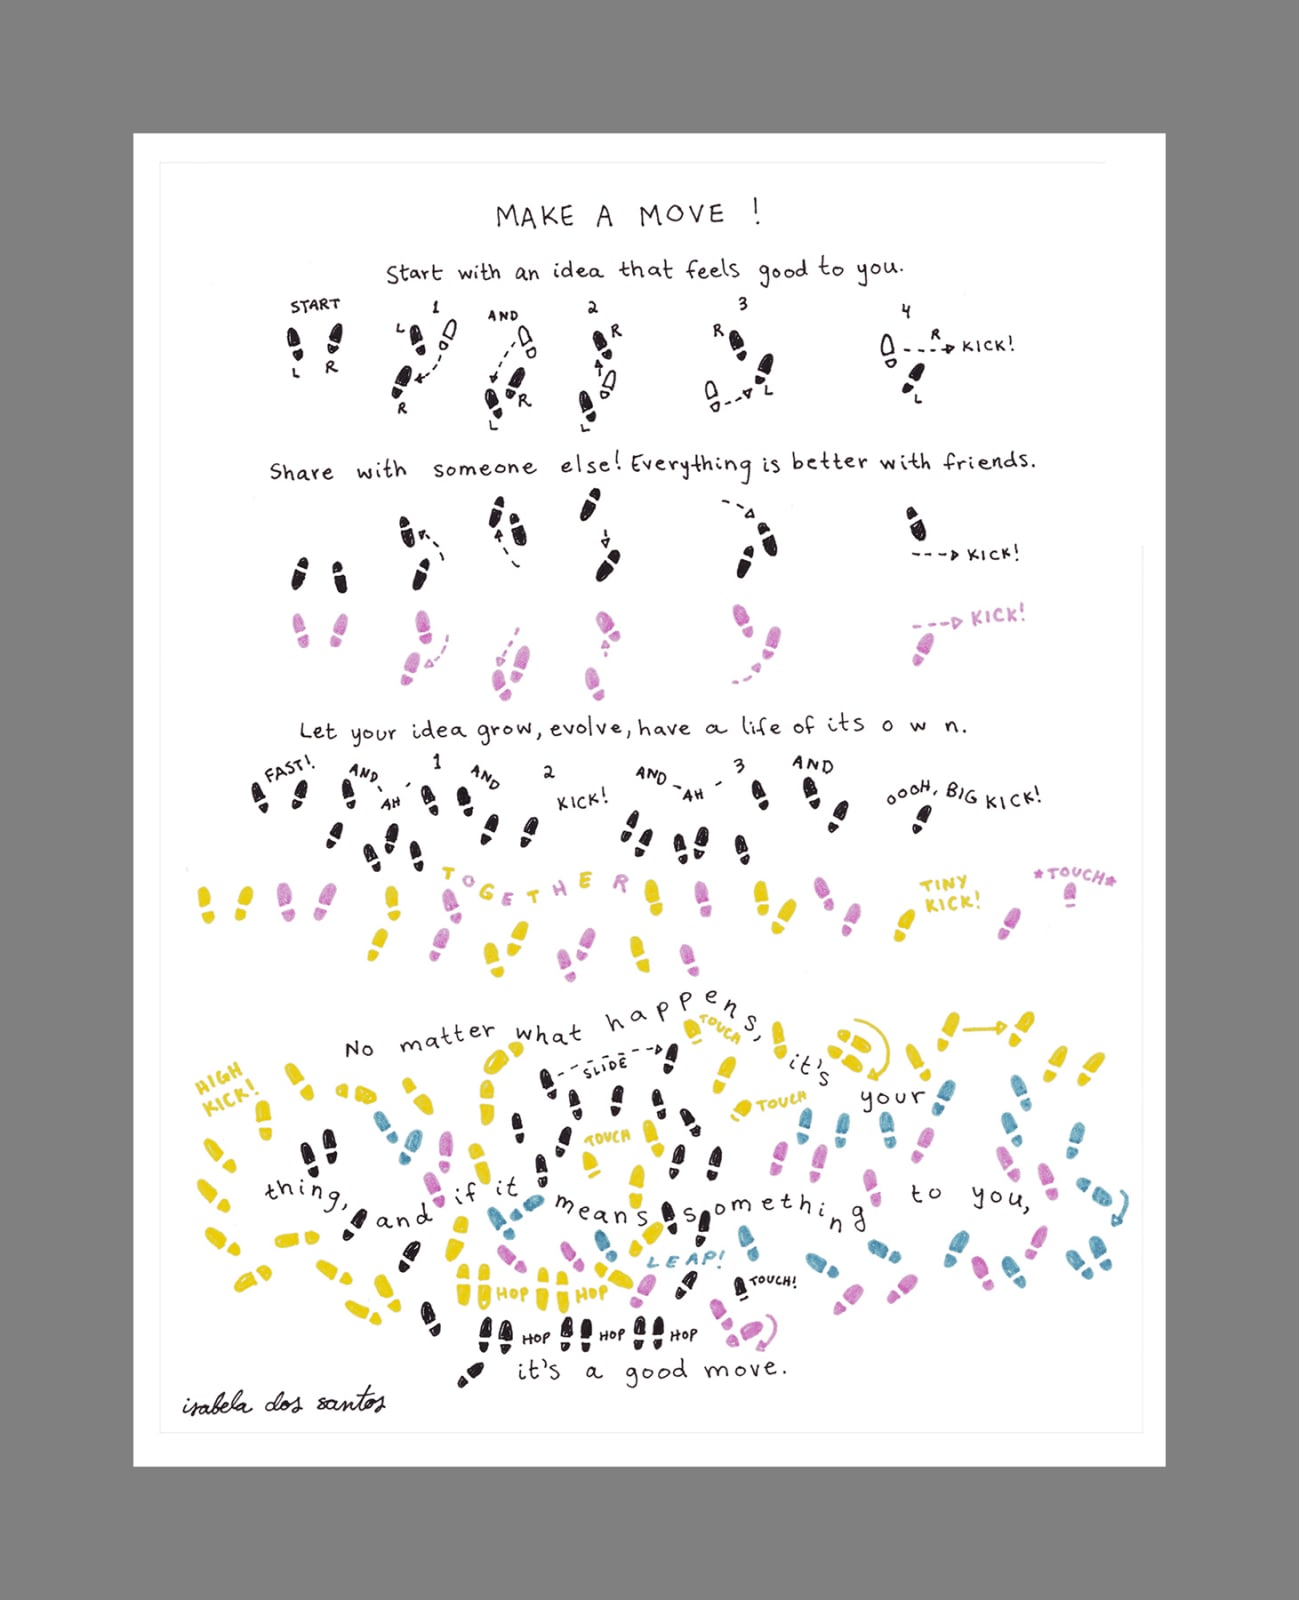 MAKE A MOVE !
Start with an idea that feels good to you.
START 1 AND 2 3 4
L R L R L R R L R L R KICK! L
Share with someone else! Everything is better with friends.
KICK!
KICK!
Let your idea grow, evolve, have a life of its o w n.
FAST! AND AH 1 AND 2 KICK! AND AH 3 AND OOOH, BIG KICK!
TOGETHER TINY KICK! *TOUCH*
No matter what happens, it's your
TOUCH
HIGH KICK!
SLIDE
TOUCH
TOUCH
thing, and if it means something to you,
LEAP!
HOP HOP TOUCH!
HOP HOP HOP
it's a good move.
isabela dos santos